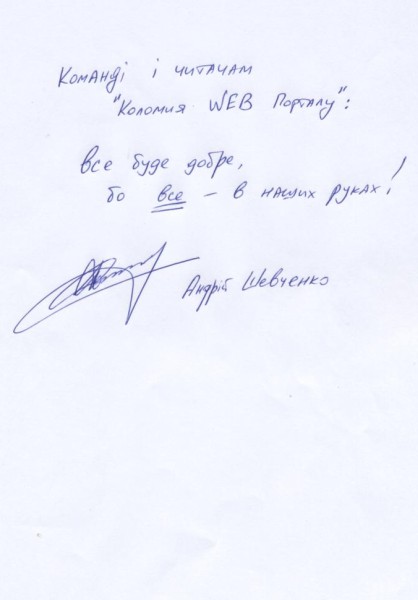 Команді і читачам
"Коломия WEB Порталу":
все буде добре,
бо все – в наших руках!
Андрій Шевченко